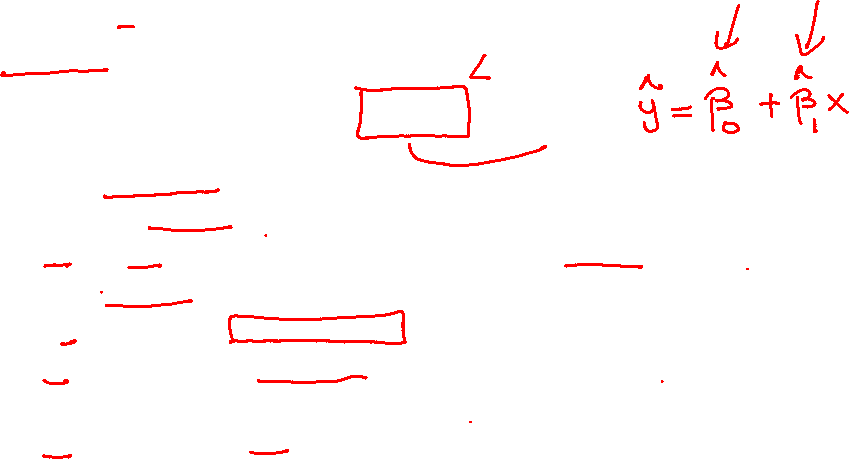 ŷ = β̂₀ + β̂₁ x